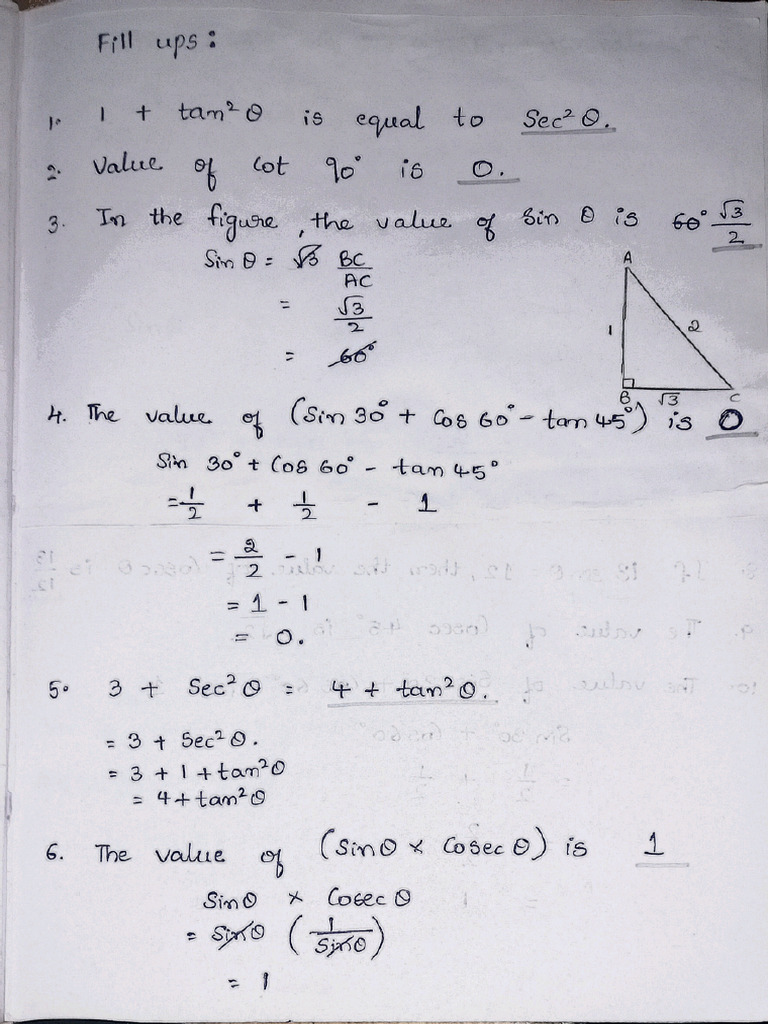 Fill ups:
1. 1 + tan² θ is equal to Sec² θ.
2. Value of Cot 90° is 0.
3. In the figure, the value of Sin θ is 60° √3/2
Sin θ = √3 BC/AC
= √3/2
= 60°
A
1
2
B √3 C
4. The value of (Sin 30° + Cos 60° - tan 45°) is 0
Sin 30° + Cos 60° - tan 45°
= 1/2 + 1/2 - 1
= 2/2 - 1
= 1 - 1
= 0.
5. 3 + Sec² θ = 4 + tan² θ.
= 3 + Sec² θ.
= 3 + 1 + tan² θ
= 4 + tan² θ
6. The value of (Sin θ × Cosec θ) is 1
Sin θ × Cosec θ
= Sin θ (1/Sin θ)
= 1